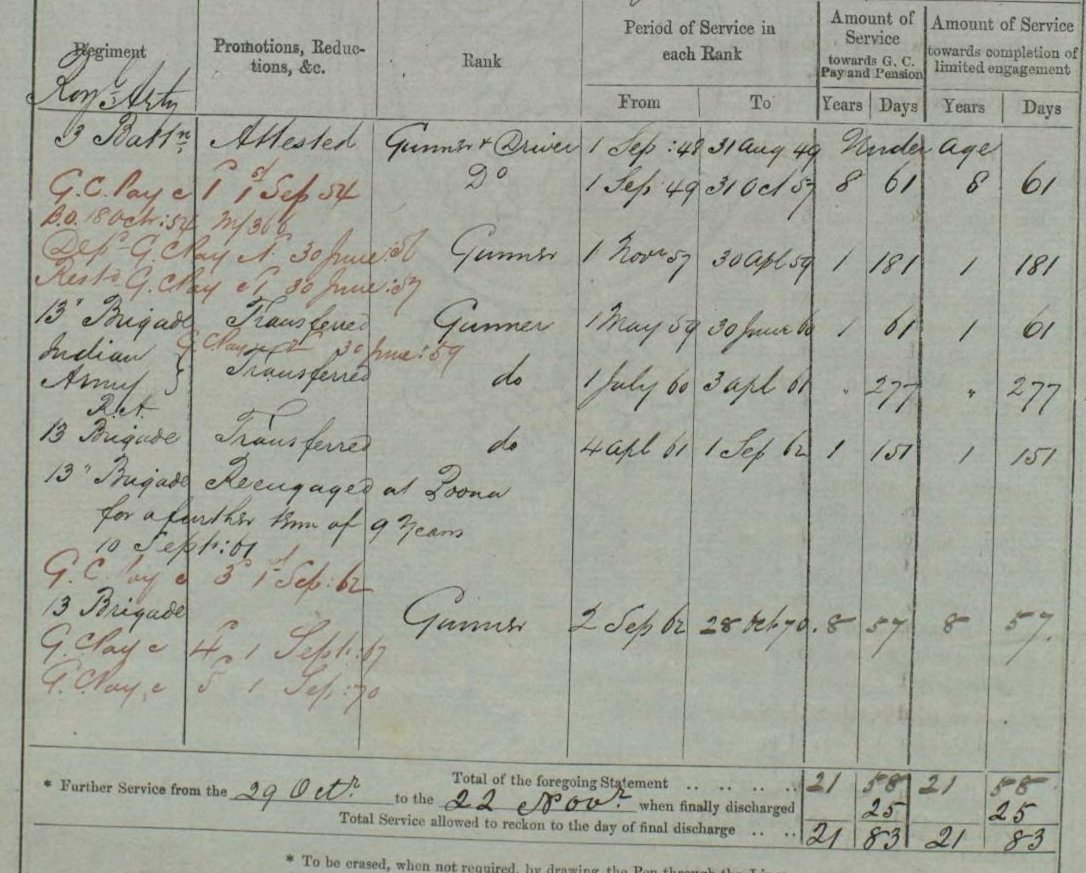 Regiment Promotions, Reductions, &c. Rank Period of Service in each Rank Amount of Service towards G. C. Pay and Pension Amount of Service towards completion of limited engagement
From To Years Days Years Days
Roy'l Arty
3 Battn. Attested Gunner & Driver 1 Sep :48 31 Aug 49 Under age
G.C. Pay @ 1d 1st Sep 54 Do 1 Sep 49 31 Oct 57 8 61 8 61
B.O. 18 Octr: 54
Depd G.C. Pay 30 June :56 Gunner 1 Novr 57 30 Apl 59 1 181 1 181
Restd G.C. Pay 30 June :57
13" Brigade Transferred Gunner 1 May 59 30 June 60 1 61 1 61
G.C. Pay @ 2d 30 June :59
Indian Army } Transferred do 1 July 60 3 Apl 61 " 277 " 277
R.A.
13 Brigade Transferred do 4 Apl 61 1 Sep 62 1 151 1 151
13" Brigade Reengaged at Poona
for a further term of 9 Years
10 Sept: 61
G.C. Pay @ 3d 1st Sep: 62
13 Brigade Gunner 2 Sep 62 28 Oct 70. 8 57 8 57.
G.C. Pay @ 4d 1 Sept: 67
G.C. Pay @ 5d 1 Sep: 70
Total of the foregoing Statement .. .. .. .. 21 58 21 58
* Further Service from the 29 Octr to the 22 Novr when finally discharged 25 25
Total Service allowed to reckon to the day of final discharge .. .. 21 83 21 83
* To be erased, when not required, by drawing the Pen through the